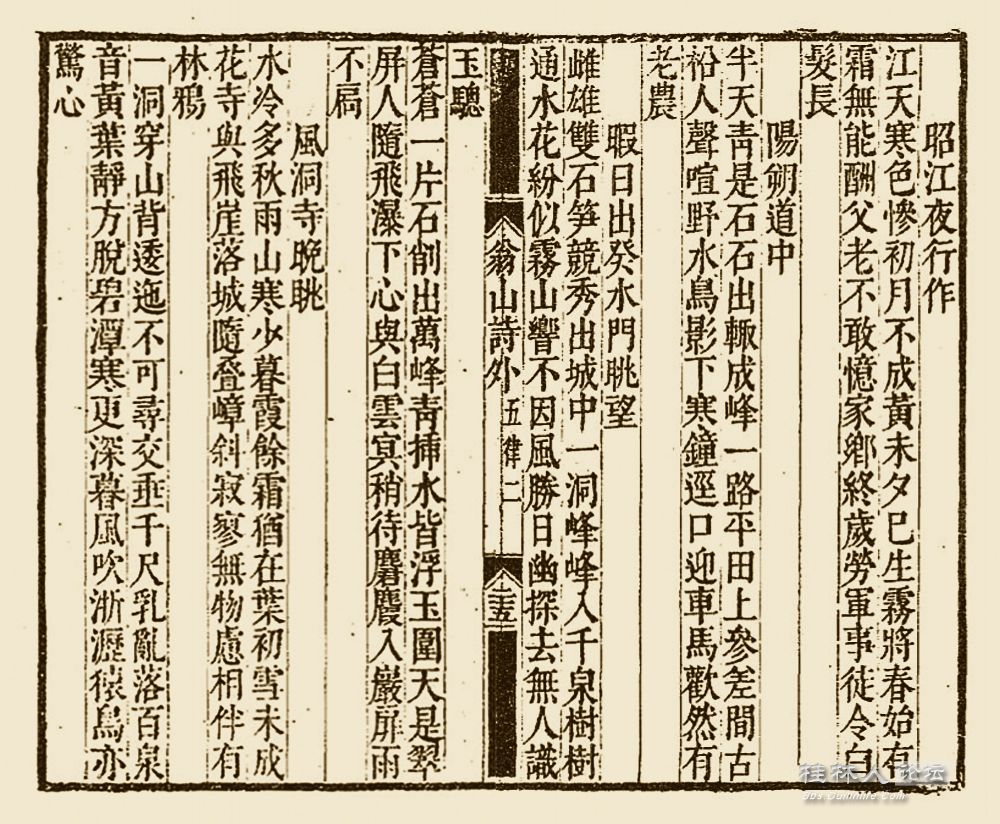 昭江夜行作
江天寒色慘初月不成黃未夕巳生霧將春始有
霜無能酬父老不敢憶家鄉終歲勞軍事徒令白
髮長
陽朔道中
半天靑是石石出輙成峰一路平田上參差間古
松人聲喧野水鳥影下寒鐘逕口迎車馬歡然有
老農
暇日出癸水門眺望
雌雄雙石笋競秀出城中一洞峰峰入千泉樹樹
通水花紛似霧山響不因風勝日幽探去無人識
翁山詩外
五律二
三五
玉驄
蒼蒼一片石削出萬峰靑揷水皆浮玉圍天是翠
屏人隨飛瀑下心與白雲冥稍待麏麚入巖扉雨
不扃
風洞寺晚眺
水冷多秋雨山寒少暮霞餘霜猶在葉初雪未成
花寺與飛崖落城隨叠嶂斜寂寥無物慮相伴有
林鴉
一洞穿山背逶迤不可尋交垂千尺乳亂落百泉
音黃葉靜方脫碧潭寒更深暮風吹淅瀝猿鳥亦
驚心
桂林人论坛